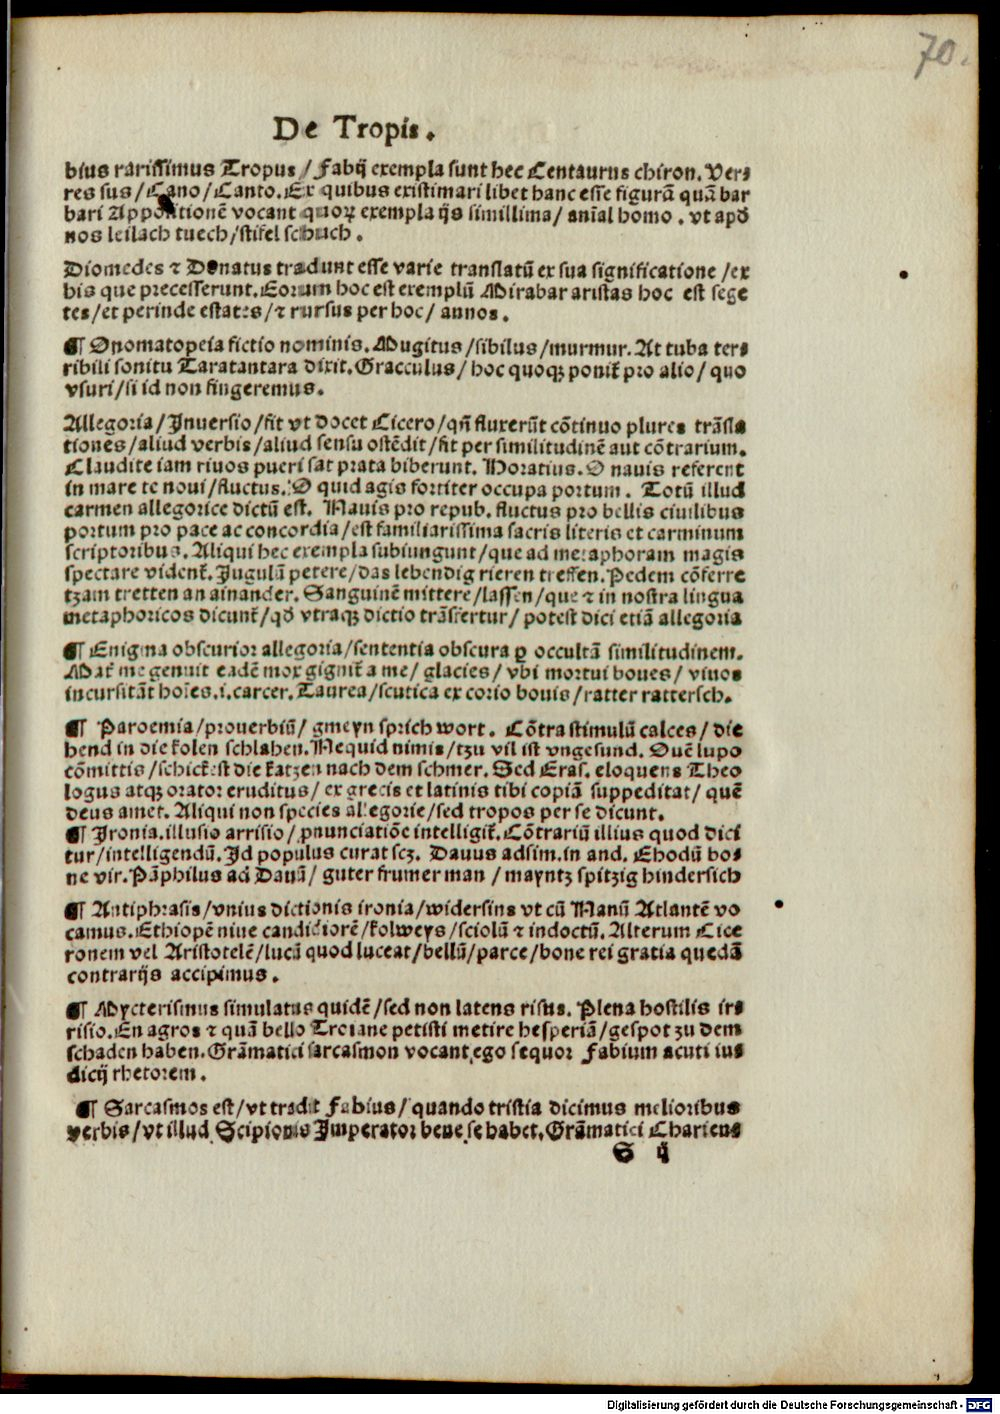 70.
De Tropis.
bius rarissimus Tropus / Fabij exempla sunt hec Centaurus chiron. Ver⸗
res sus / Cano / Canto. Ex quibus existimari libet hanc esse figurā quā bar
bari Appositionē vocant quoꝝ exempla ijs simillima / anīal homo . vt apď
nos leilach tuech / stifel schuch .
Diomedes ⁊ Donatus tradunt esse varie translatū ex sua significatione / ex
his que precesserunt. Eorum hoc est exemplū Mirabar aristas hoc est sege
tes / et perinde estates / ⁊ rursus per hoc / annos .
¶ Onomatopeia fictio nominis. Mugitus / sibilus / murmur. At tuba ter⸗
ribili sonitu Taratantara dixit. Gracculus / hoc quoqꝫ poniť pro alio / quo
vsuri / si id non fingeremus .
Allegoria / Inuersio / fit vt docet Cicero / qn̄ fluxerūt cōtinuo plures trāsla
tiones / aliud verbis / aliud sensu ostēdit / fit per similitudinē aut cōtrarium.
Claudite iam riuos pueri sat prata biberunt. Horatius. O nauis referent
in mare te noui / fluctus. O quid agis fortiter occupa portum . Totū illud
carmen allegorice dictū est. Nauis pro repub. fluctus pro bellis ciuilibus
portum pro pace ac concordia / est familiarissima sacris literis et carminum
scriptoribus. Aliqui hec exempla subiungunt / que ad metaphoram magis
spectare videnť. Jugulū petere / das lebendig rieren treffen. Pedem cōferre
tzam tretten an ainander. Sanguinē mittere / lassen / que ⁊ in nostra lingua
metaphoricos dicunť / qď vtraqꝫ dictio trāsfertur / potest dici etiā allegoria
¶ Enigma obscurior allegoria / sententia obscura ꝑ occultā similitudinem.
Mať me genuit eadē mox gigniť a me / glacies / vbi mortui boues / viuos
incursitāt hoīes. i. carcer. Taurea / scutica ex corio bouis / ratter rattersch.
¶ Paroemia / prouerbiū / gmeyn sprich wort . Cōtra stimulū calces / die
hend in die kolen schlahen. Nequid nimis / tzu vil ist vngesund. Ouē lupo
cōmittis / schickest die katzen nach dem schmer. Sed Eras. eloquens Theo
logus atqꝫ orator eruditus / ex grecis et latinis tibi copiā suppeditat / quē
deus amet. Aliqui non species allegorie / sed tropos per se dicunt.
¶ Ironia. illusio arrisio / ꝓnunciatiōe intelligiť. Cōtrariū illius quod dici
tur / intelligendū. Id populus curat scꝫ. Dauus adsim. in and. Ehodū bo⸗
ne vir. Pāphilus ad Dauū / guter frumer man / mayntz spitzig hindersich
¶ Antiphrasis / vnius dictionis ironia / widersins vt cū Nanū Atlantē vo
camus. Ethiopē niue candidiorē / kolweys / sciolū ⁊ indoctū. Alterum Cice
ronem vel Aristotelē / lucū quod luceat / bellū / parce / bone rei gratia quedā
contrarijs accipimus .
¶ Mycterismus simulatus quidē / sed non latens risus. Plena hostilis ir⸗
risio. En agros ⁊ quā bello Troiane petisti metire hesperiā / gespot zu dem
schaden haben. Grāmatici sarcasmon vocant ego sequor Fabium acuti iu⸗
dicij rhetorem .
¶ Sarcasmos est / vt tradit Fabius / quando tristia dicimus melioribus
verbis / vt illud Scipionis Imperator bene se habet. Grāmatici Chariens
S ij
Digitalisierung gefördert durch die Deutsche Forschungsgemeinschaft - DFG